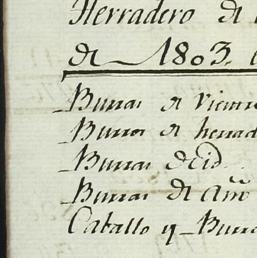 Herradero de
de 1803.
Burras de vient
Burros de herrad
Burras de id.
Burras de Año
Caballo y Burr